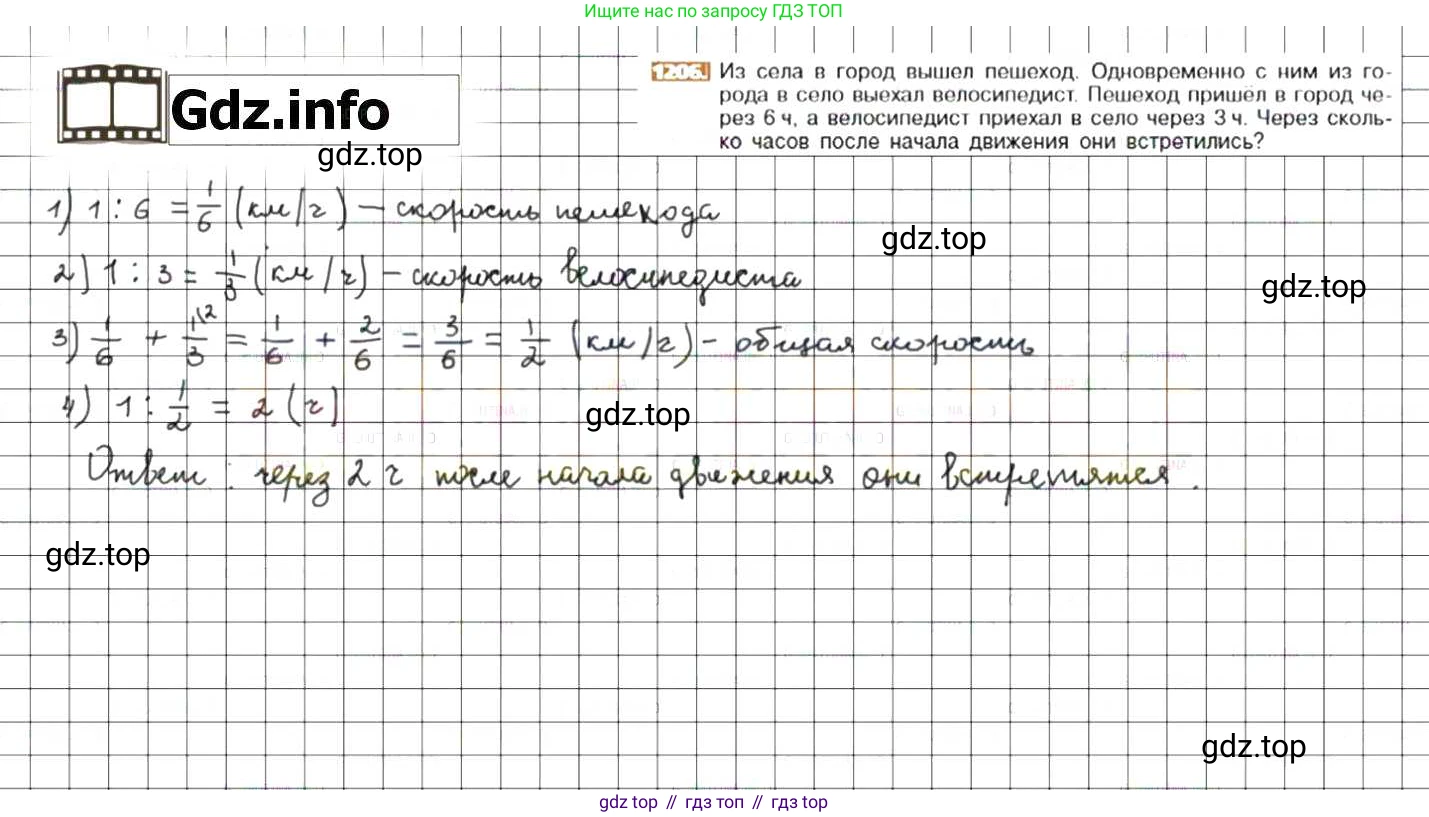 Ищите нас по запросу ГДЗ ТОП
Gdz.info
gdz.top
1206. Из села в город вышел пешеход. Одновременно с ним из го-
рода в село выехал велосипедист. Пешеход пришёл в город че-
рез 6 ч, а велосипедист приехал в село через 3 ч. Через сколь-
ко часов после начала движения они встретились?
1) 1 : 6 = 1/6 (км/ч) – скорость пешехода
gdz.top
2) 1 : 3 = 1/3 (км/ч) – скорость велосипедиста
gdz.top
3) 1/6 + 1/3 \2 = 1/6 + 2/6 = 3/6 = 1/2 (км/ч) – общая скорость
4) 1 : 1/2 = 2 (ч)
gdz.top
Ответ : через 2 ч после начала движения они встретятся .
gdz.top
gdz.top
gdz top // гдз топ // gdz top